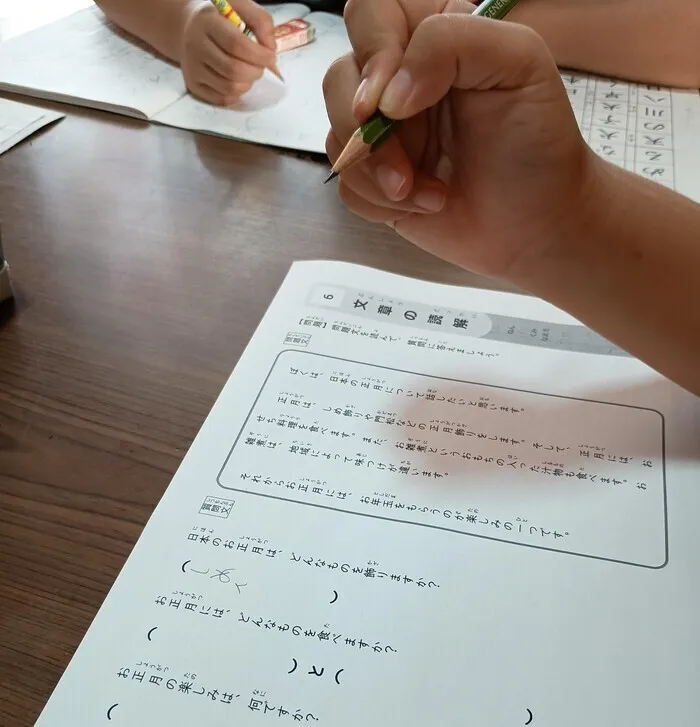 6 文章の読解
【問題】問題文を読んで、質問に答えましょう。
問題文
ぼくは、日本の正月について話したいと思います。
正月は、しめ飾りや門松などの正月飾りをします。そして、正月には、お
せち料理を食べます。また、お雑煮というおもちの入った汁物も食べます。お
雑煮は、地域によって味つけが違います。
それからお正月には、お年玉をもらうのが楽しみの一つです。
質問文
日本のお正月は、どんなものを飾りますか？
（しめ　　　）
お正月には、どんなものを食べますか？
（　　　）と（
お正月の楽しみは、何ですか？
（　　　）